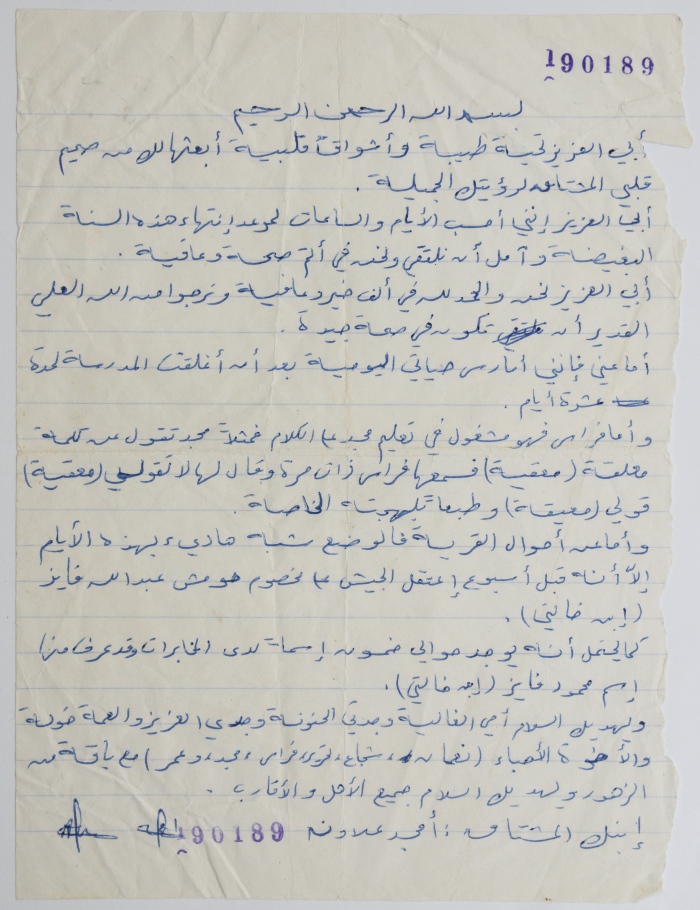 190189
بسم الله الرحمن الرحيم
أبي العزيز تحية طيبة وأشواق قلبية أبعثها لك من صميم
قلبي المشتاق لرؤيتك الجميلة .
أبي العزيز إنني أحسب الأيام والساعات لموعد إنتهاء هذه السنة
البغيضة وآمل أن نلتقي ونحن في أتم صحة وعافية .
أبي العزيز نحن والحمد لله في ألف خير وعافية ونرجوا من الله العلي
القدير أن تكون في صحة جيدة .
أما عني فإنني أمارس حياتي اليومية بعد أن أغلقت المدرسة لمدة
عشرة أيام .
وأما فراس فهو مشغول في تعليم مجد على الكلام فمثلاً مجد تقول عن كلمة
معلقة (معقية) فسمعها فراس ذات مرة وقال لها لا تقولي (معقية)
قولي (معيقة) وطبعا بلهجته الخاصة .
وأما عن أحوال القرية فالوضع شبه هاديء بهذه الأيام
إلا أنه قبل أسبوع إعتقل الجيش على مخصوم هومش عبد الله فايز
(إبن خالتي) .
كما يحتمل أنه يوجد حوالي خمسون إسماً لدى المخابرات وقد عرف منها
إسم محمود فايز (إبن خالتي) .
ويهديك السلام أمي الغالية وجدتي الحنونة وجدي العزيز والعمة خولة
والأخوة الأحباء (نعمان، شجاع، فراس، مجد، وعمر) مع باقة من
الزهور ويهديك السلام جميع الأهل والأقارب .
إبنك المشتاق : أمجد علاونه
190189